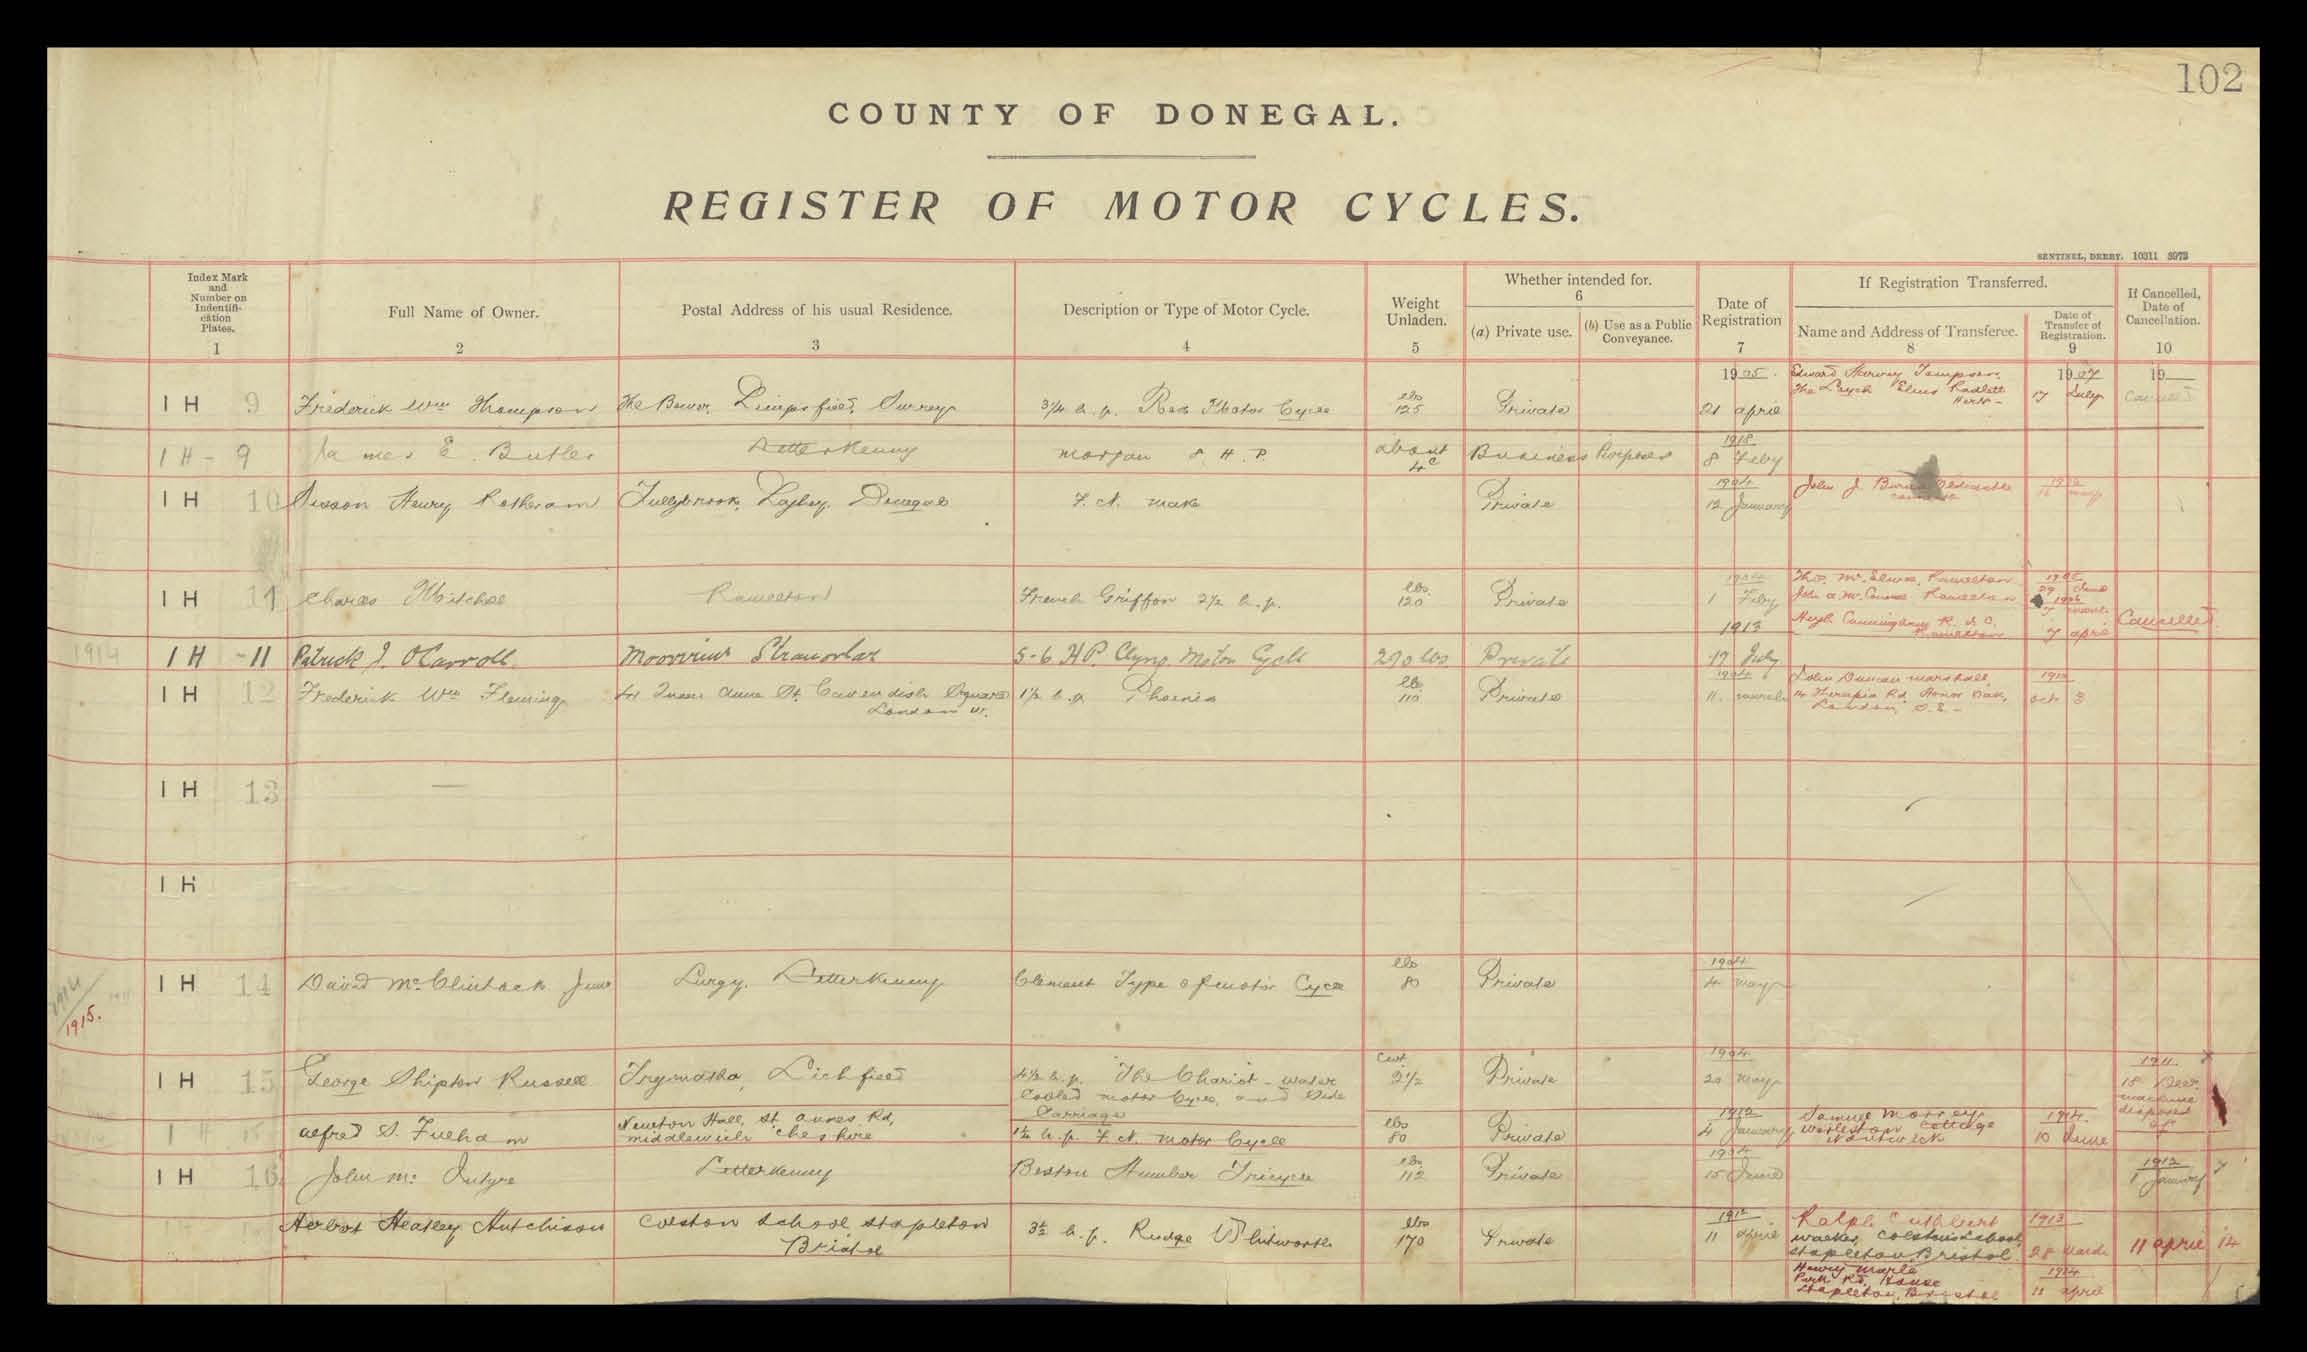 102
COUNTY OF DONEGAL.
REGISTER OF MOTOR CYCLES.
SENTINEL, DERRY. 10311 3973
Index Mark
and
Number on
Indentifi-
cation
Plates.
1
Full Name of Owner.
2
Postal Address of his usual Residence.
3
Description or Type of Motor Cycle.
4
Weight
Unladen.
5
Whether intended for.
6
(a) Private use.
(b) Use as a Public
Conveyance.
Date of
Registration
7
If Registration Transferred.
Name and Address of Transferee.
8
Date of
Transfer of
Registration.
9
If Cancelled,
Date of
Cancellation.
10
1905 Edward Harvey 1907 19
IH 9 Frederick Wm Thompson The Bower, Limpsfield, Surrey 3/4 h.p. Rex Motor Cycle lbs 125 Private 21 April The Elms Radlett Herts 17 July Cancelled
IH - 9 James E. Butler Letterkenny Morgan 8 H.P. about 4c Business Purposes 1918 8 Feby
IH 10 Henry Rotheram Tullybrook, Donegal F.N. make Private 1904 12 January John J.
IH 11 Charles Mitchell Ramelton French Griffon 2½ h.p. lbs 120 Private 1904 1 Feby Ramelton 29 June
1906
Hugh Cunningham Ramelton 7 April Cancelled
1914 IH -11 Patrick J. OCarroll Stranorlar 5-6 HP. Clyno Motor Cycle 290 lbs Private 1913 19 July
IH 12 Frederick Wm Fleming Queen Anne St. Cavendish Square London W. 1½ h.p. Phoenix lbs 110 Private 1904 11 March John Duncan Marshall,
14 Therapia Rd, Honor Oak,
London, S.E. Oct 3
IH 13 —
IH
1914
1915. IH 14 David McClintock Junr Lurgy, Letterkenny Clement Type of motor Cycle lbs 80 Private 1904 4 May
IH 15 George Shipton Russell Trysmatha, Lichfield 4½ h.p. "The Chariot - water
cooled motor Cycle, and Side
Carriage Cwt 2½ Private 1904 20 May 1911
15 Decr
machine
disposed
of
IH 15 Alfred S. Fulham Newton Hall, St. Annes Rd,
Middlewich Cheshire 1¼ h.p. F.N. Motor Cycle lbs 80 Private 1912 4 January Samuel Morrey
Worleston Cottage
Nantwich 1914 10 June
IH 16 John McIntyre Letterkenny Beeston Humber Tricycle lbs 112 Private 1904 15 June 1912 1 January
Herbert Heatley Hutchison Colston School Stapleton
Bristol 3½ h.p. Rudge Whitworth lbs 170 Private 1912 11 April Ralph Cuthbert
Walker, Colston's School,
Stapleton, Bristol 1913 28 March 11 April 14
Henry Marle
Park Rd, House
Stapleton, Bristol 1914 11 April